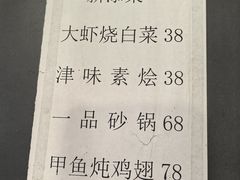 大虾烧白菜 38
津味素烩 38
一品砂锅 68
甲鱼炖鸡翅 78